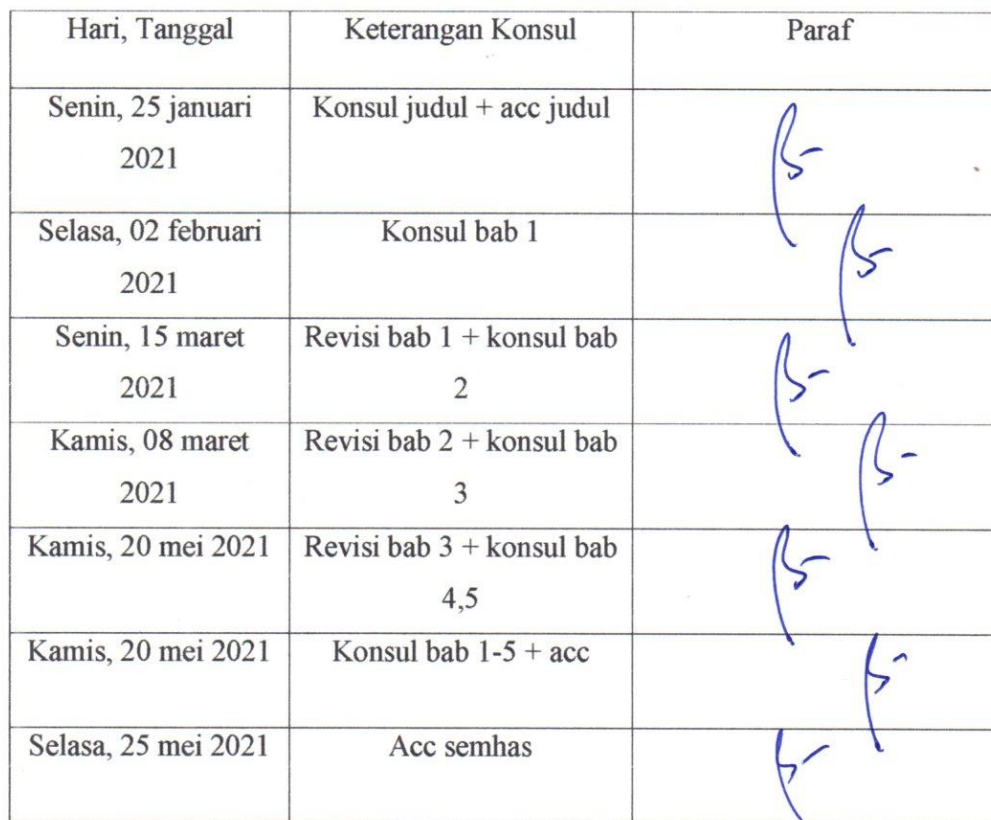 Hari, Tanggal Keterangan Konsul Paraf
Senin, 25 januari Konsul judul + acc judul
2021
Selasa, 02 februari Konsul bab 1
2021
Senin, 15 maret Revisi bab 1 + konsul bab
2021 2
Kamis, 08 maret Revisi bab 2 + konsul bab
2021 3
Kamis, 20 mei 2021 Revisi bab 3 + konsul bab
4,5
Kamis, 20 mei 2021 Konsul bab 1-5 + acc
Selasa, 25 mei 2021 Acc semhas